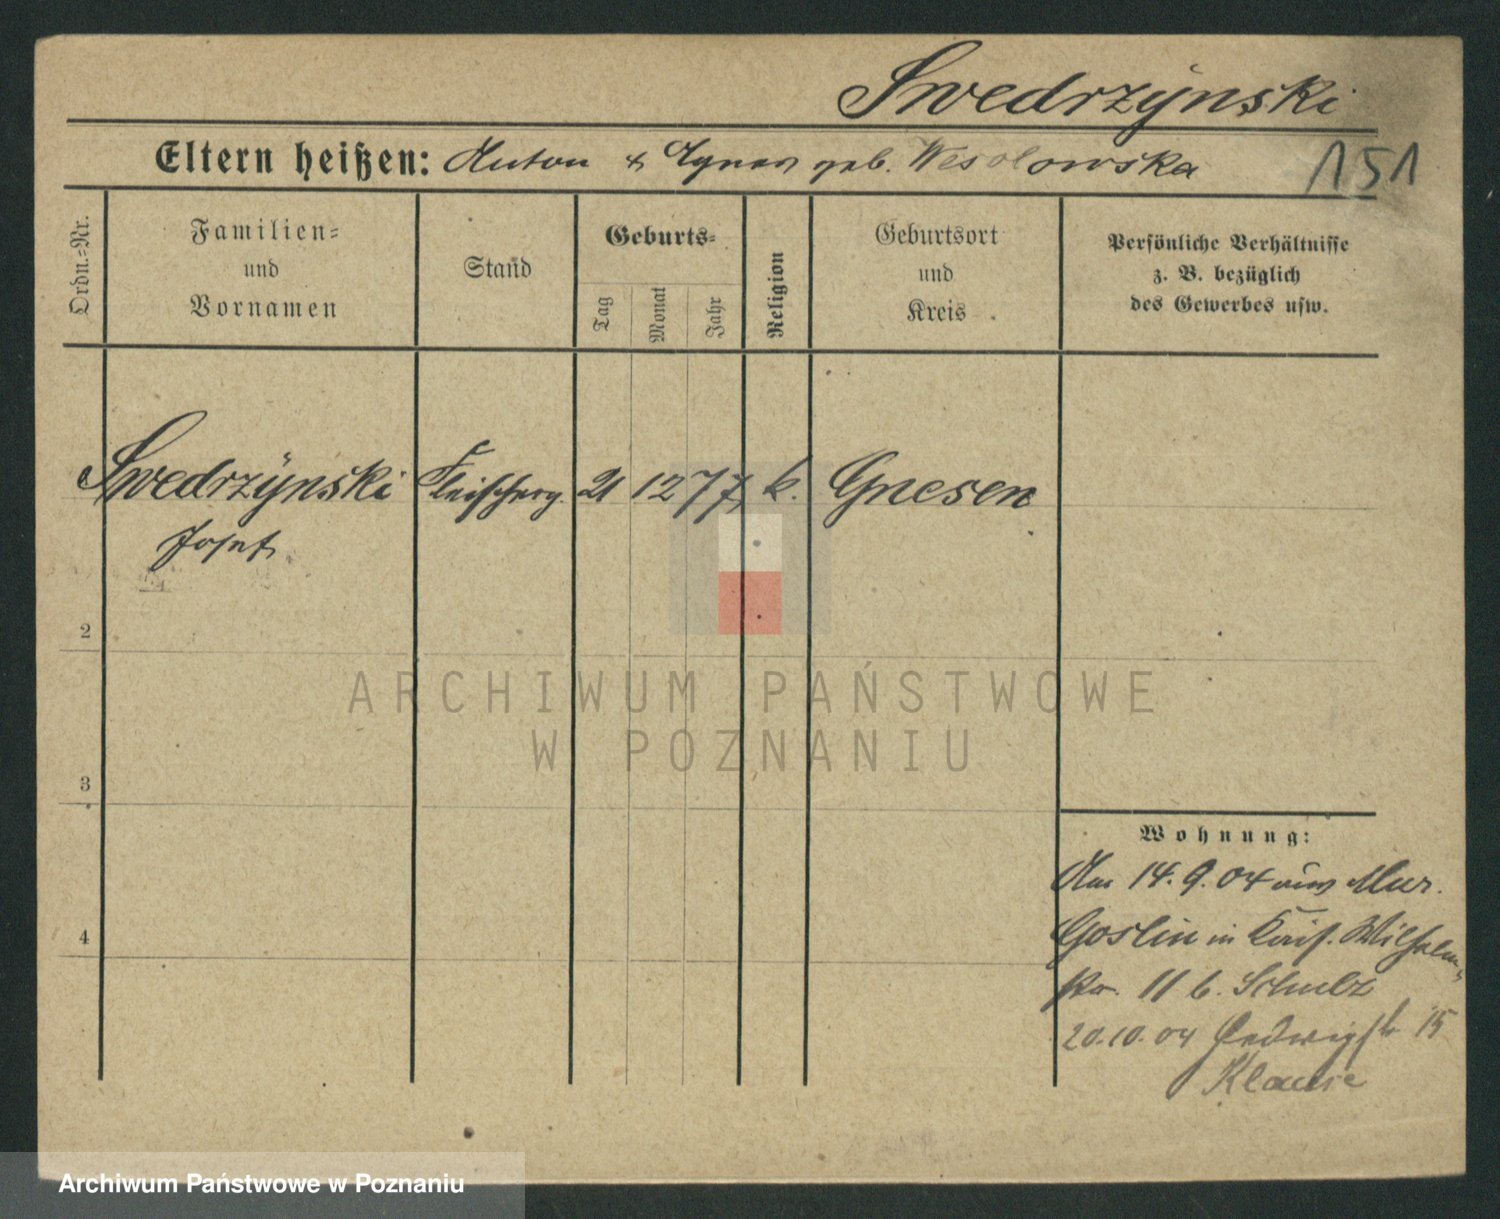 Swedrzynski
Eltern heißen: Anton & Agnes geb. Wesolowska
151
Ordn.-Nr.
Familien-
und
Vornamen
Stand
Geburts-
Tag
Monat
Jahr
Religion
Geburtsort
und
Kreis
Persönliche Verhältnisse
z. B. bezüglich
des Gewerbes usw.
Swedrzynski Fleischerg. 21 12 77, k. Gnesen
Josef
2
3
4
ARCHIWUM PAŃSTWOWE
W POZNANIU
Wohnung:
Am 14.9.04 aus Mur.
Goslin in Kais. Wilhelm-
str. 11 b. Schulz
20.10.04 Hedwigstr 15
Klause
Archiwum Państwowe w Poznaniu